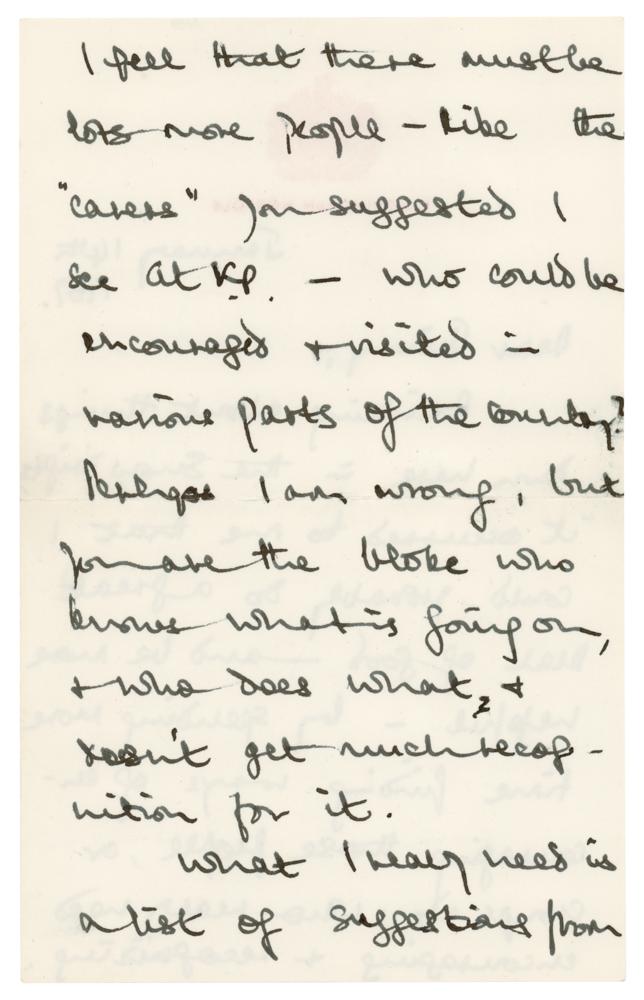 I feel that there must be
lots more people - like the
"carers" you suggested I
see at K.P. - who could be
encouraged + visited in
various parts of the country?
Perhaps I am wrong, but
you are the bloke who
knows what is going on,
+ who does what, +
doesn't get much recog-
nition for it.
What I really need is
a list of suggestions from